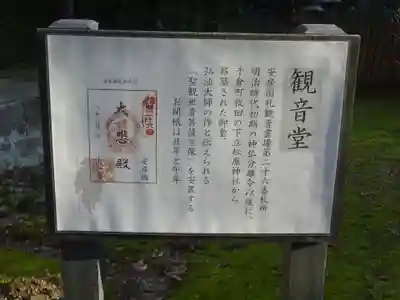 観音堂
安房国札観音霊場第二十六番札所
明治時代初期の神仏分離令以後に、
千倉町牧田の下立松原神社から
移築された御堂。
弘法大師の作と伝えられる
「聖観世音菩薩立像」を安置する
お開帳は丑年と午年
大悲殿
安房国